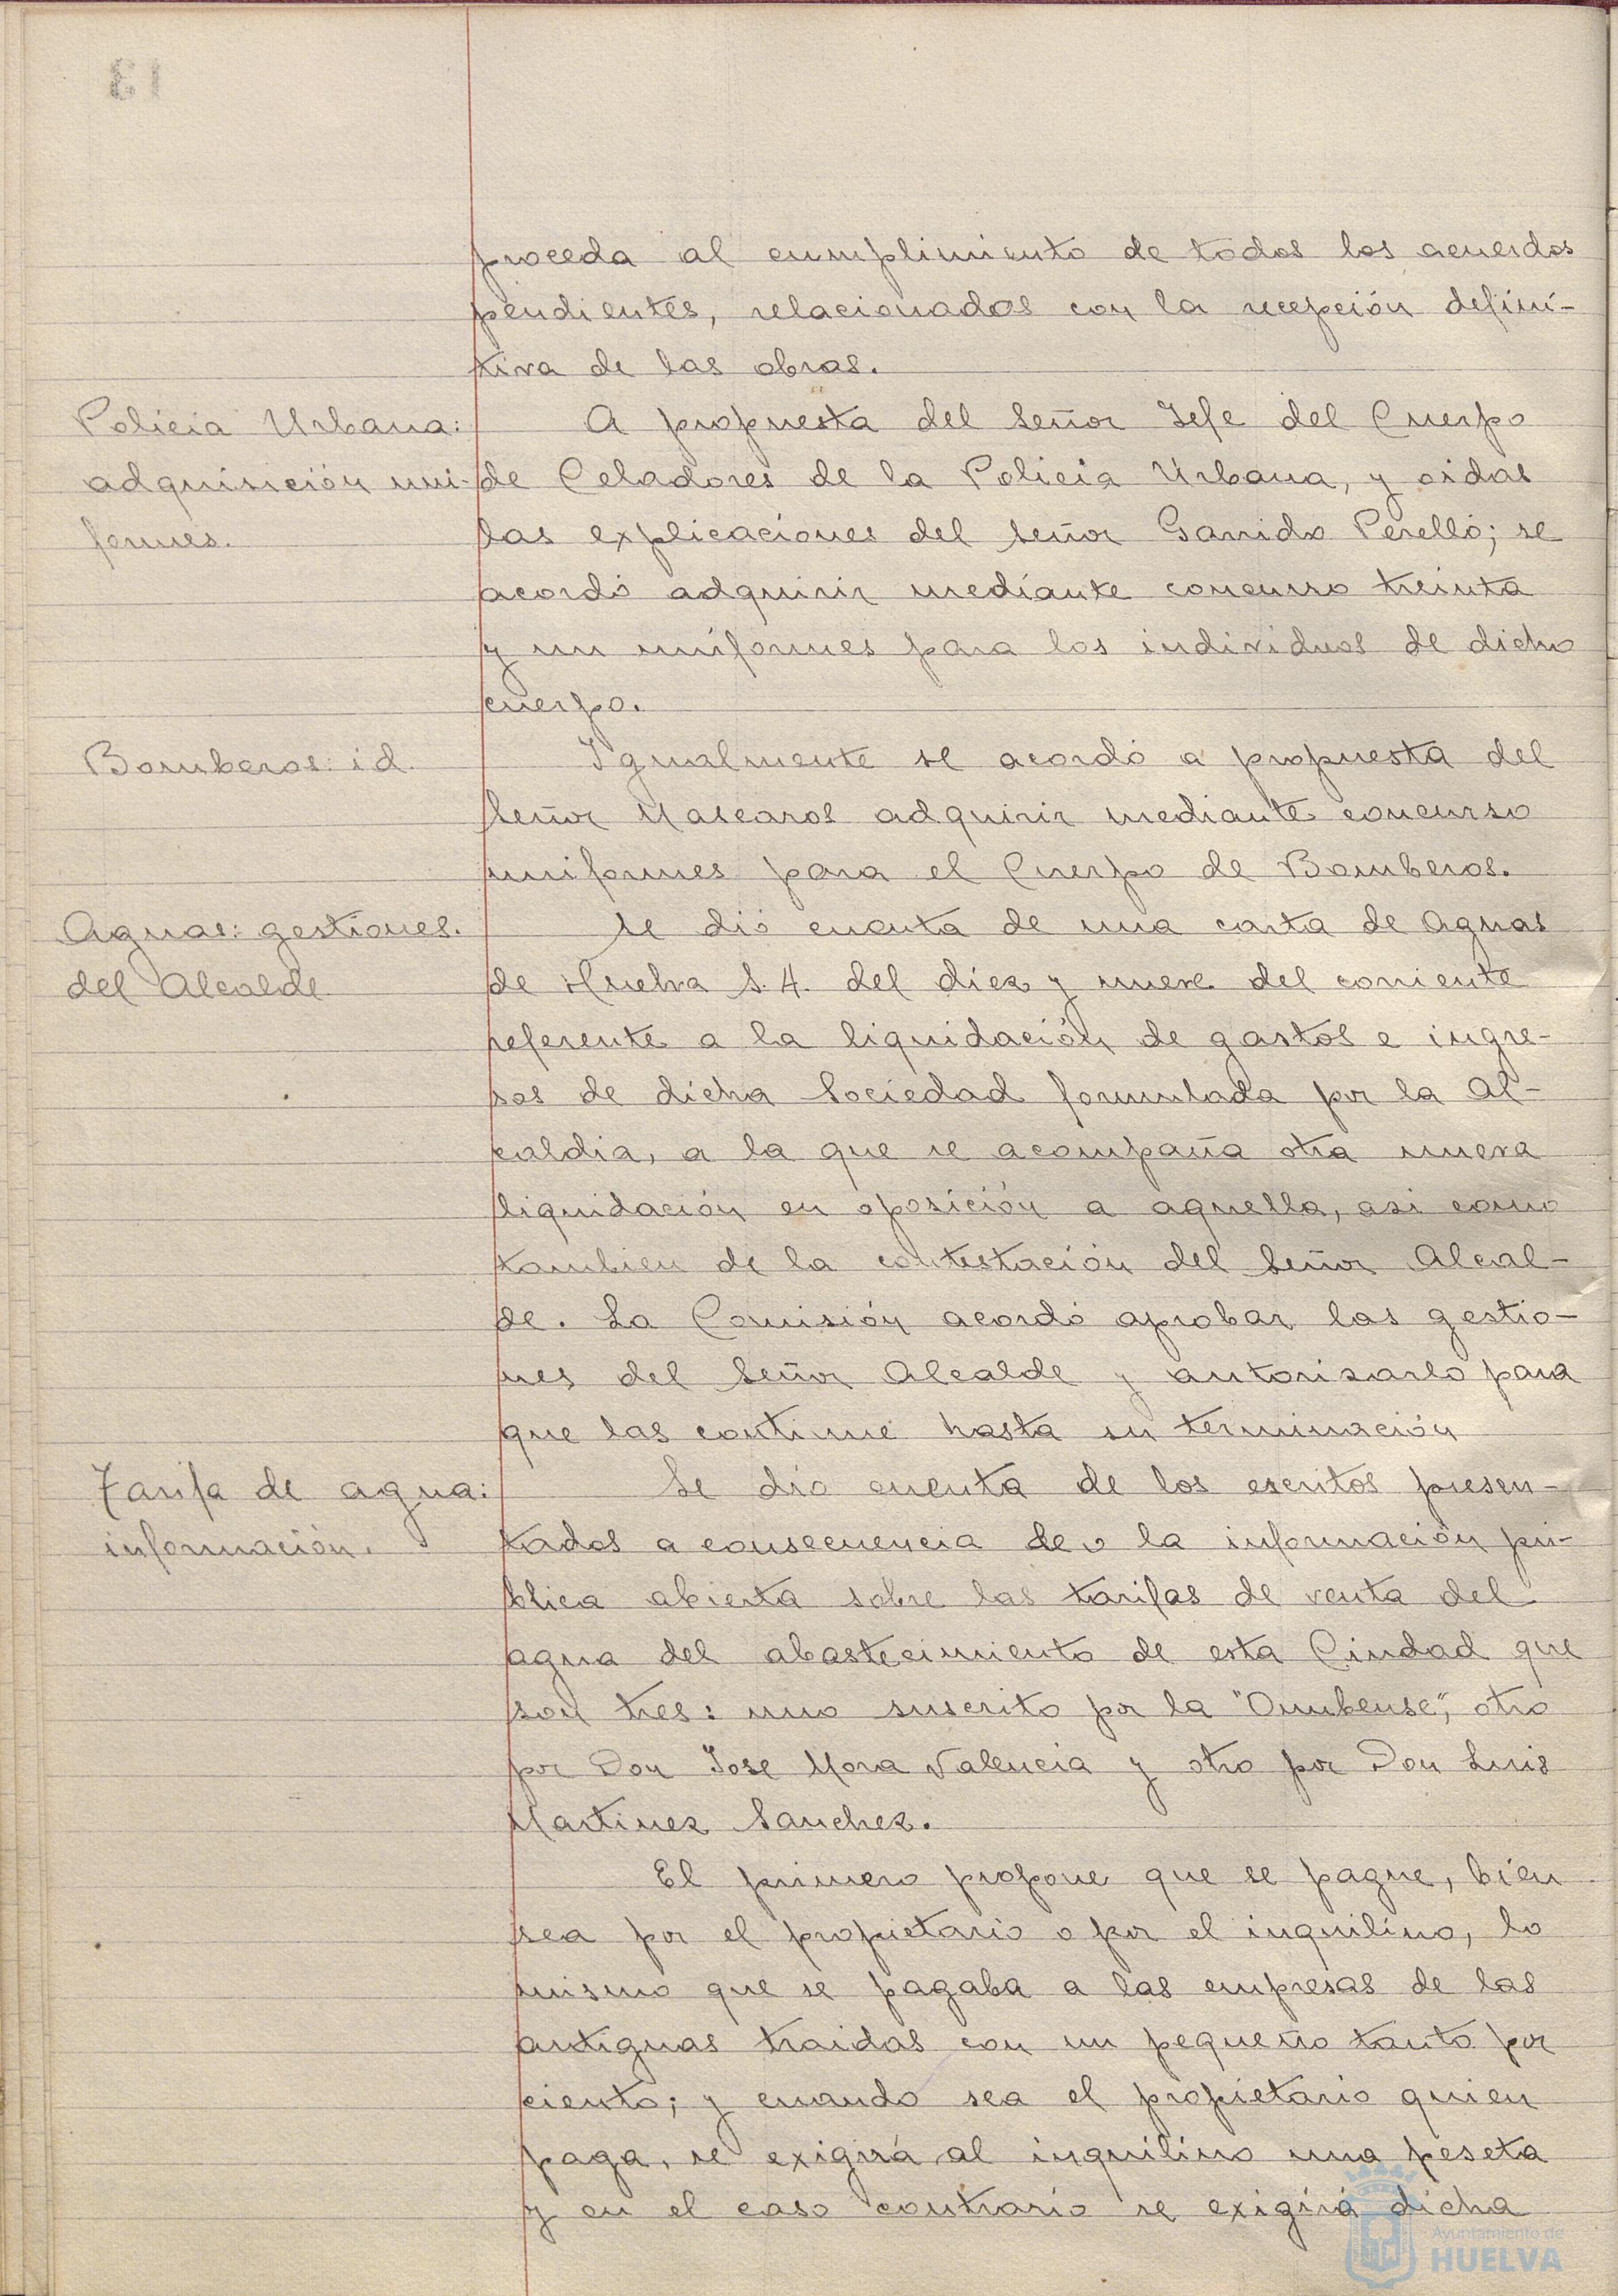 13
proceda al cumplimiento de todos los acuerdos
pendientes, relacionados con la recepción defini-
tiva de las obras.
Policia Urbana:
adquisición uni-
formes.
A propuesta del Señor Jefe del Cuerpo
de Celadores de la Policia Urbana, y oidas
las explicaciones del Señor Garrido Perelló; se
acordó adquirir mediante concurso treinta
y un uniformes para los individuos de dicho
cuerpo.
Bomberos: id.
Igualmente se acordó a propuesta del
Señor Mascaros adquirir mediante concurso
uniformes para el Cuerpo de Bomberos.
Aguas: gestiones.
del Alcalde
Se dió cuenta de una carta de Aguas
de Huelva S.A. del diez y nueve del corriente
referente a la liquidación de gastos e ingre-
sos de dicha Sociedad formulada por la Al-
caldia, a la que se acompaña otra nueva
liquidación en oposición a aquella, asi como
tambien de la contestación del Señor Alcal-
de. La Comisión acordó aprobar las gestio-
nes del Señor Alcalde y autorizarlo para
que las continue hasta su terminación
Tarifa de agua:
información.
Se dio cuenta de los escritos presen-
tados a consecuencia de la información pú-
blica abierta sobre las tarifas de venta del
agua del abastecimiento de esta Ciudad que
son tres: uno suscrito por la "Onubense", otro
por Don Jose Mora Valencia y otro por Don Luis
Martinez Sanchez.
El primero propone que se pague, bien
sea por el propietario o por el inquilino, lo
mismo que se pagaba a las empresas de las
antiguas traidas con un pequeño tanto por
ciento; y cuando sea el propietario quien
paga, se exigirá al inquilino una peseta
y en el caso contrario se exigirá dicha
Ayuntamiento de
HUELVA